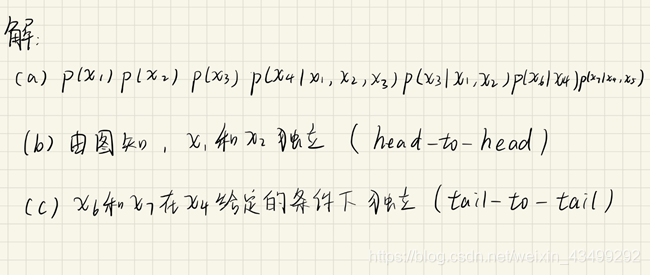 解:
(a) p(x₁) p(x₂) p(x₃) p(x₄|x₁, x₂, x₃) p(x₃|x₁, x₂) p(x₆|x₄) p(x₇|x₄, x₅)
(b) 由图知, x₁和x₂独立 (head-to-head)
(c) x₆和x₇在x₄给定的条件下独立 (tail-to-tail)
https://blog.csdn.net/weixin_43499292